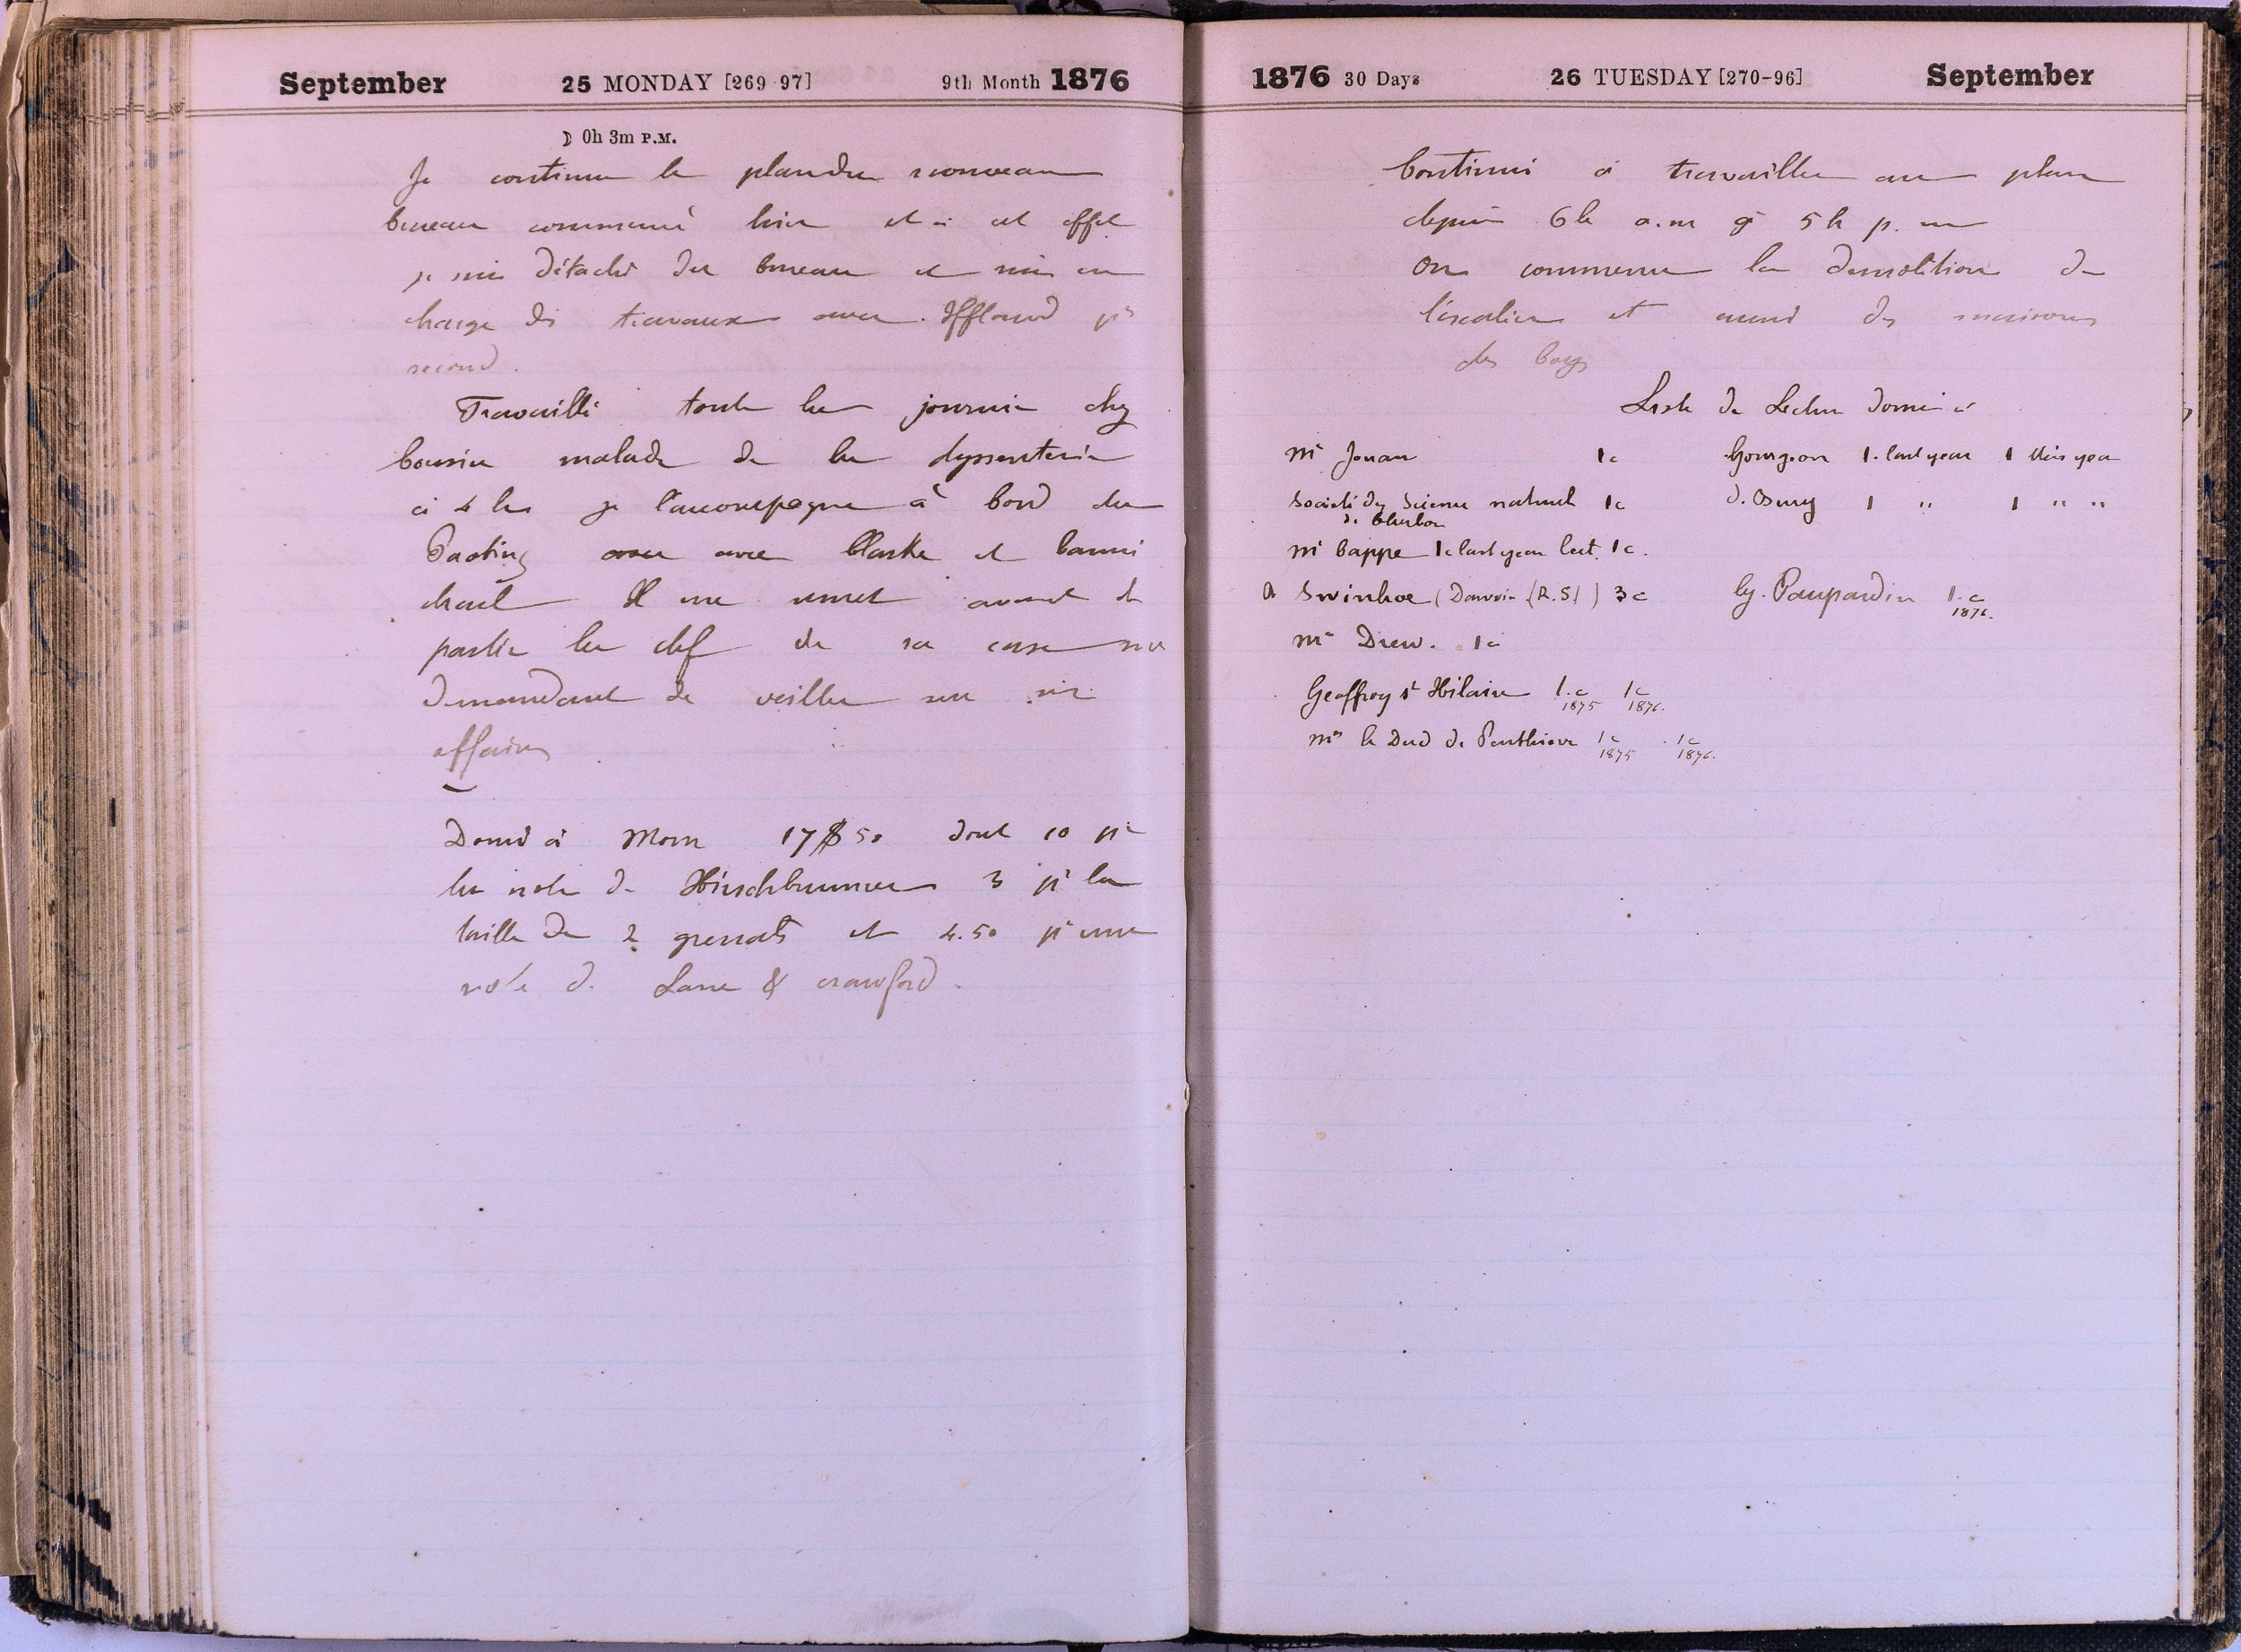 September 25 MONDAY [269-97] 9th Month 1876
☽ 0h 3m P.M.
Je continue le plan du nouveau
bureau commencé hier et à cet effet
je suis détaché du bureau et mis en
charge des travaux avec Iffland pr
second.
Travaillé toute la journée chez
Cousin malade de la dyssenterie
à 4 hs je l'accompagne à bord du
Paoting avec Clarke et
Il me remet avant de
partir la clef de sa caisse me
demandant de veiller sur ses
affaires
Donné à Morn 17$50 dont 10 pr
la note de Hirschbrunner 3 pr la
taille de 2 grenats et 4.50 pr une
note de Lane & Crawford.
1876 30 Days 26 TUESDAY [270-96] September
Continué à travailler au plan
depuis 6h a.m à 5h p.m
On commence la demolition de
l'escalier et aussi des maisons
des boys
Liste de Lecture donné à
Mr Jouan 1c Gourgeon 1. last year 1 this year
Société des Science naturel 1c 1 " 1 " "
de Cherbou
Mr Cappe 1c last year 1c.
Swinhoe (Darwin (R.S)) 3c by. Paupardin 1.c
1876.
Mr Drew. 1c
Geoffroy St Hilaire 1.c 1c
1875 1876.
Mr le Duc de Penthievre 1c 1c
1875 1876.